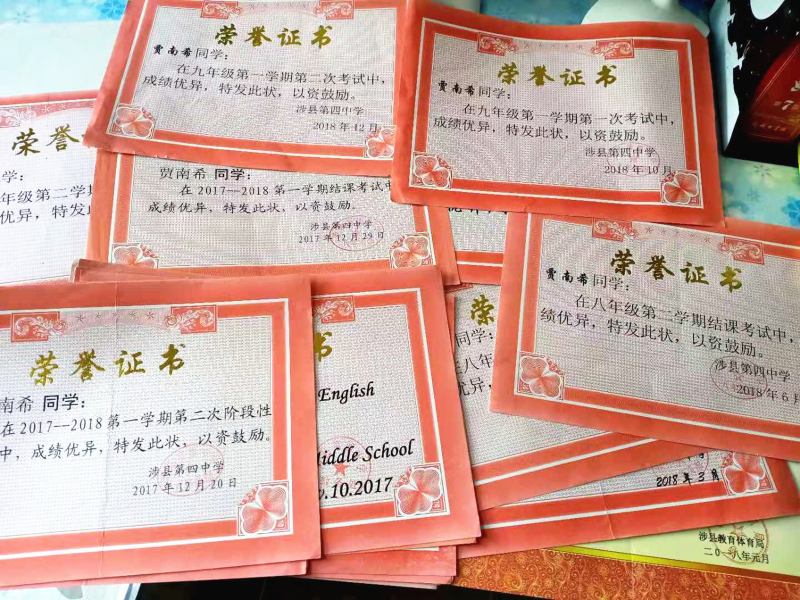 荣誉证书
贾南希同学:
在九年级第一学期第二次考试中,
成绩优异,特发此状,以资鼓励。
涉县第四中学
2018年12月
荣誉证书
贾南希同学:
在九年级第一学期第一次考试中,
成绩优异,特发此状,以资鼓励。
涉县第四中学
2018年10月
荣誉证书
学:
年级第二学期
优异,特发
贾南希 同学:
在 2017—2018 第一学期结课考试中
成绩优异,特发此状,以资鼓励。
涉县第四中学
2017年12月29日
荣誉证书
贾南希同学:
在八年级第二学期结课考试中,
绩优异,特发此状,以资鼓励。
涉县第四中学
2018年6月
荣誉证书
南希 同学:
在 2017--2018 第一学期第二次阶段性
中,成绩优异,特发此状,以资鼓励。
涉县第四中学
2017年12月20日
书
English
Middle School
.10.2017
荣
同学:
在八年
绩优异
2018年3月
涉县教育体育局
二〇一八年元月